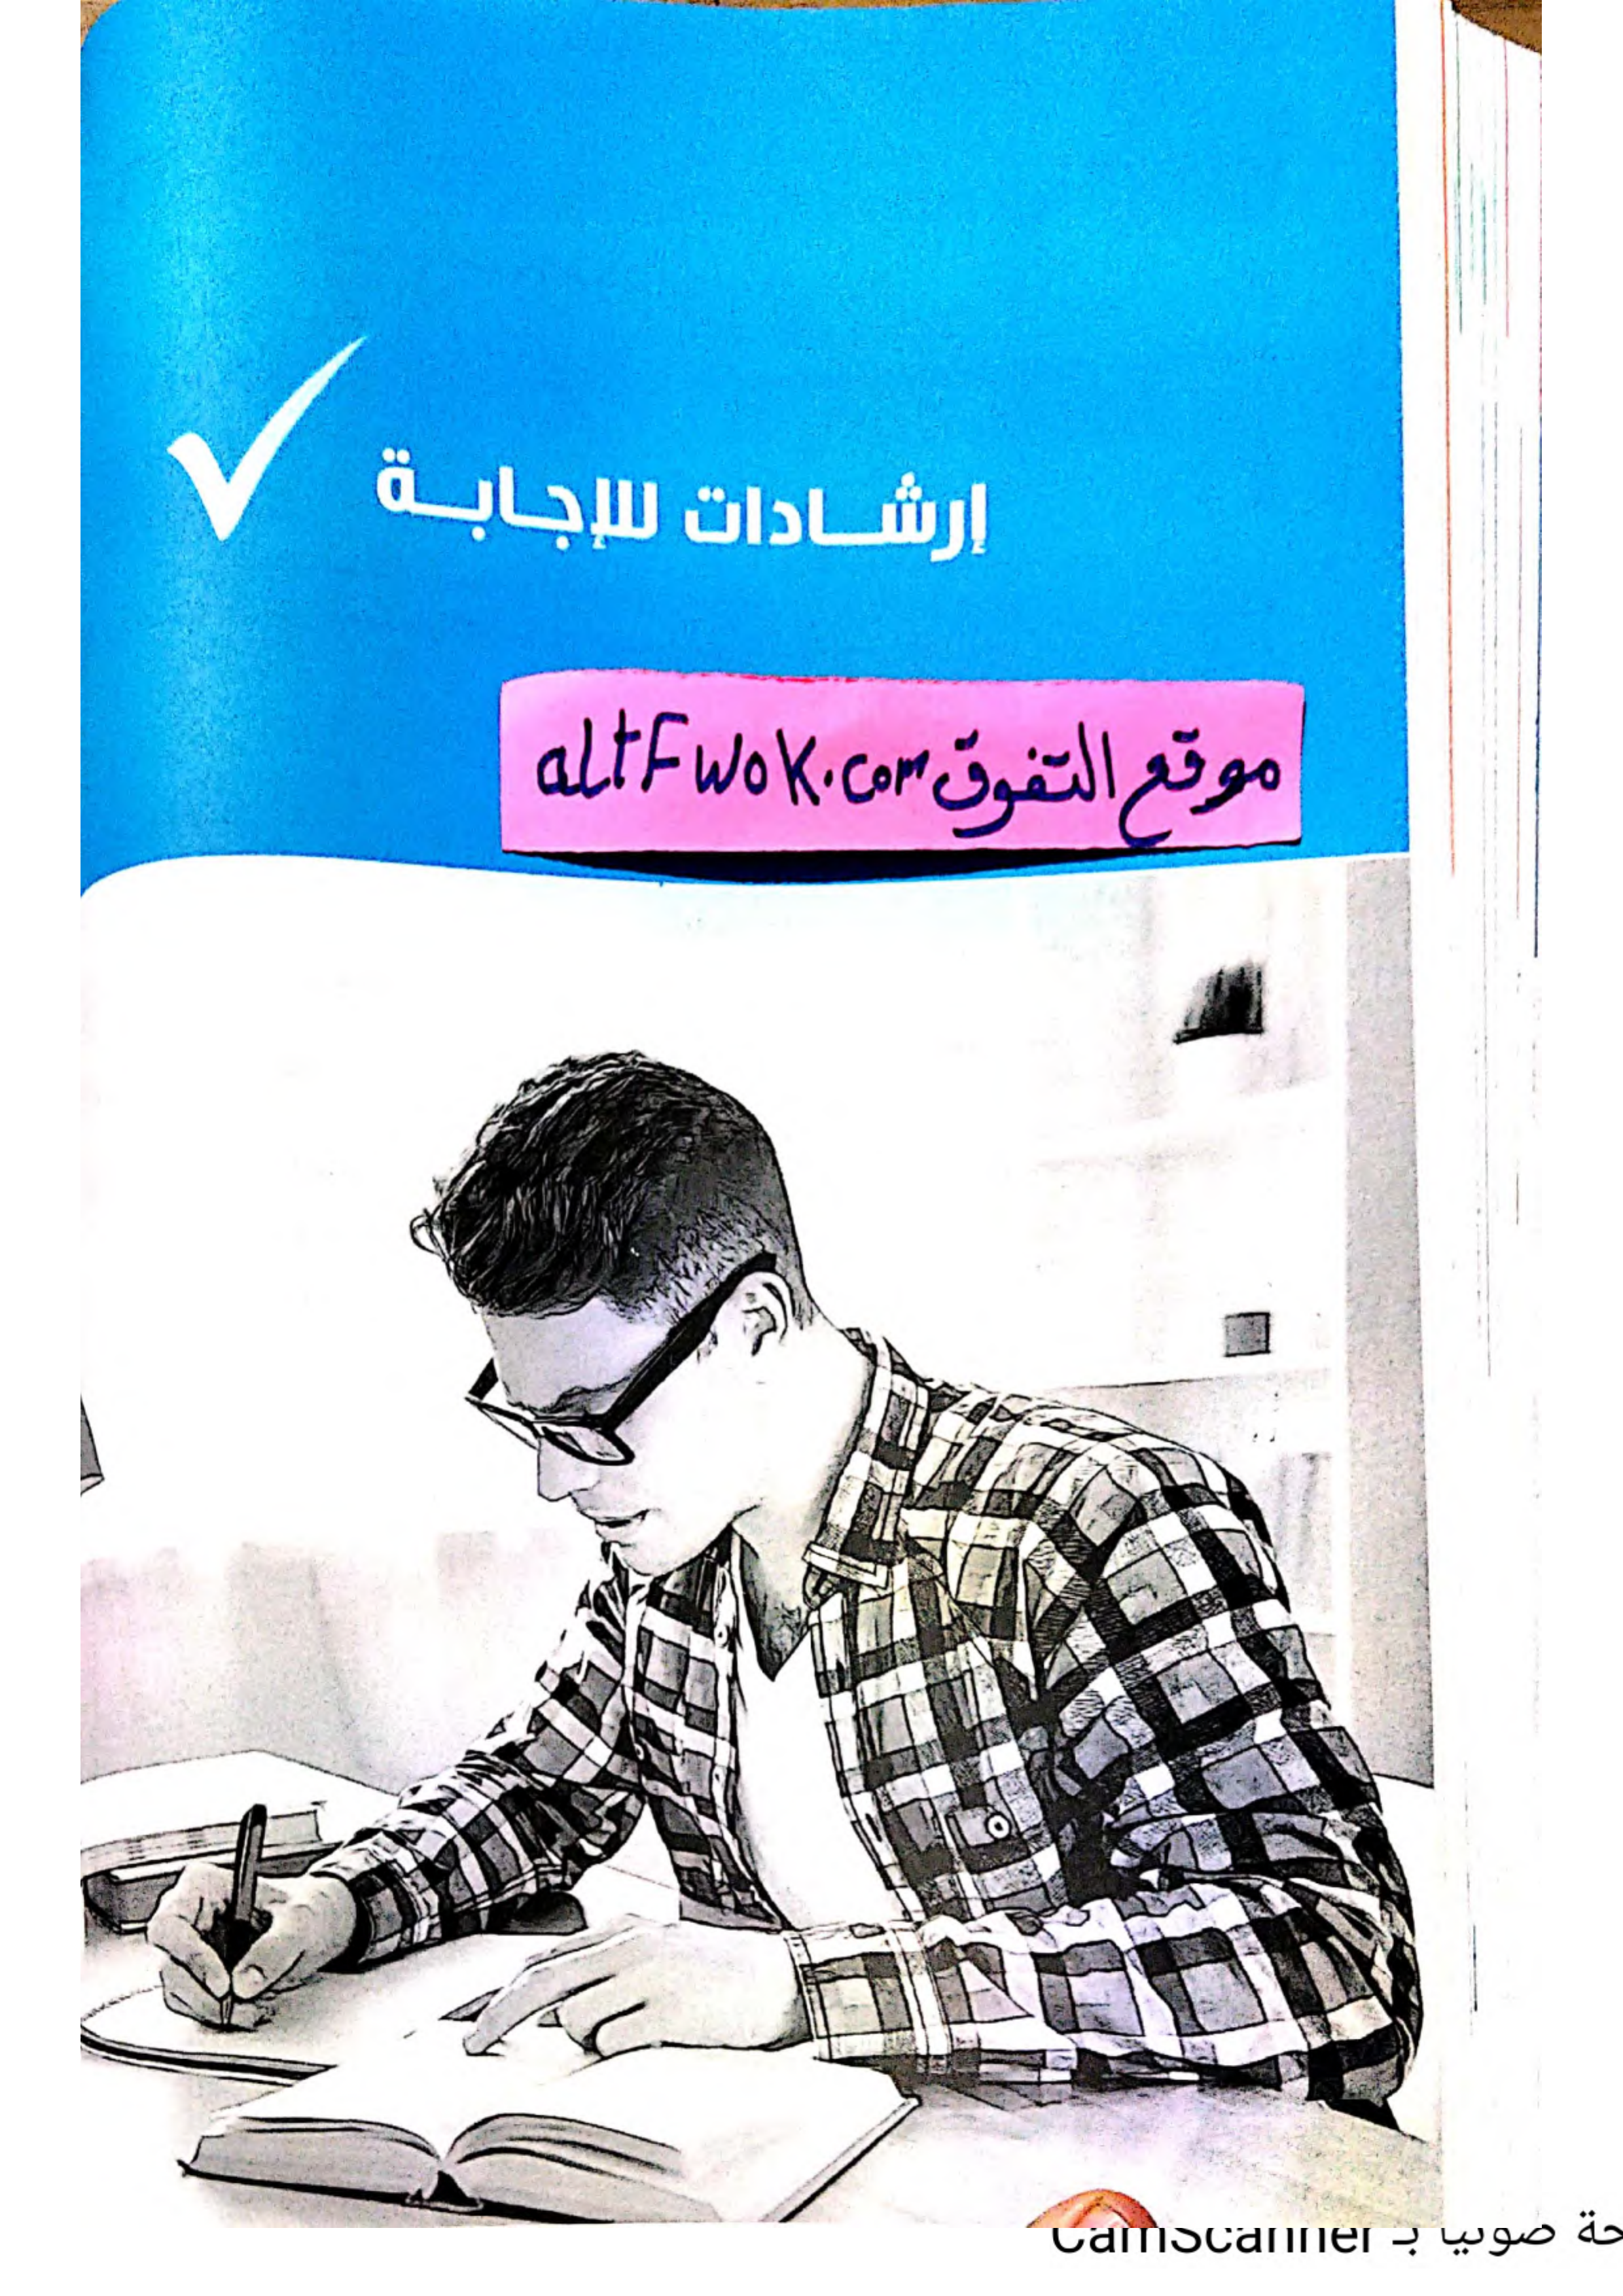 إرشادات للإجابة
موقع التفوق altFwok.com
حة ضوئيا بـ CamScanner